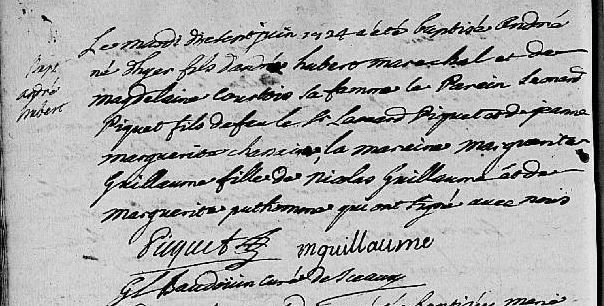 Bapt
andré
hubert
Le mardi dixsept juin 1724 a été baptisé André
né d'hyer fils d'andré hubert marechal et de
magdelaine courtois sa femme le Parein Leonard
Piquet fils de feu le Sr Leonard Piquet et de jeanne
marguerite la mareine marguerite
Guillaume fille de Nicolas Guillaume et de
marguerite puthomme qui ont signé avec nous
Piquet mguillaume
Baudouin curé de Sceaux
baptisée marie